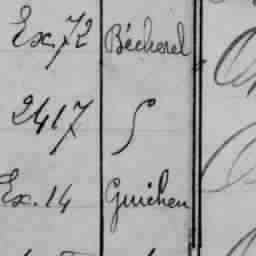 Ex. 72 Bécherel
2417 S
Ex. 14 Guichen